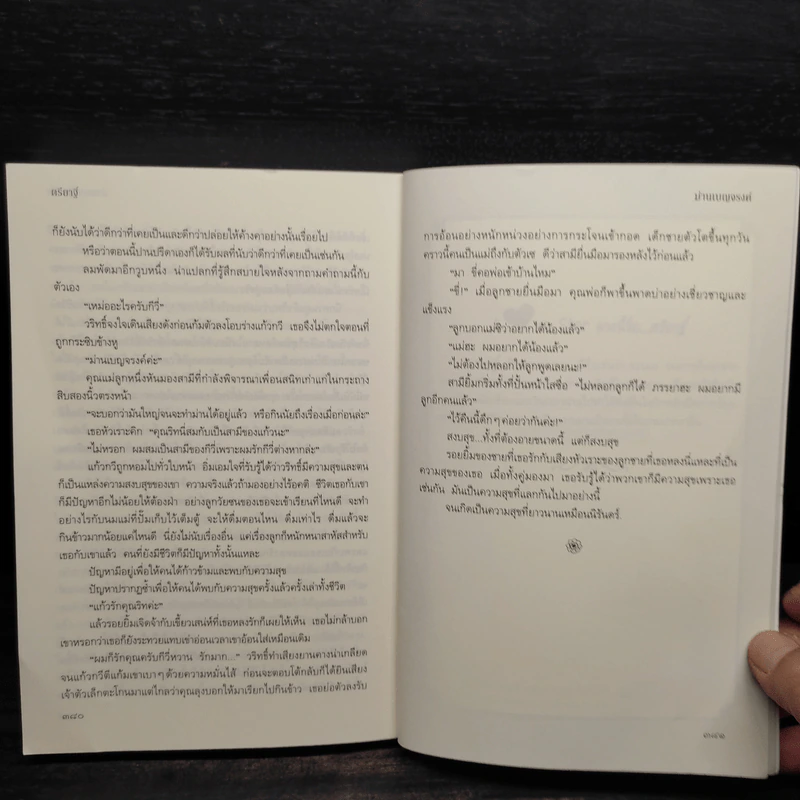 ตรีอาฐี
ก็ยังนับได้ว่าดีกว่าที่เคยเป็นและดีกว่าปล่อยให้ค้างคาอย่างนั้นเรื่อยไป
หรือว่าตอนนี้ปานปรีดาเองก็ได้รับผลที่นับว่าดีกว่าที่เคยเป็นเช่นกัน
ลมพัดมาอีกวูบหนึ่ง น่าแปลกที่รู้สึกสบายใจหลังจากถามคำถามนี้กับ
ตัวเอง
“เหม่ออะไรครับกีวี่”
วริทธิ์จงใจเดินเสียงดังก่อนก้มตัวลงโอบร่างแก้วกวี เธอจึงไม่ตกใจตอนที่
ถูกกระซิบข้างหู
“ม่านเบญจรงค์ค่ะ”
คุณแม่ลูกหนึ่งหันมองสามีที่กำลังพิจารณาเพื่อนสนิทเก่าแก่ในกระถาง
สิบสองนิ้วตรงหน้า
“จะบอกว่ามันใหญ่จนจะทำม่านได้อยู่แล้ว หรือกินนัยถึงเรื่องเมื่อก่อนล่ะ”
เธอหัวเราะคิก “คุณริทนี่สมกับเป็นสามีของแก้วนะ”
“ไม่หรอก ผมสมเป็นสามีของกีวี่เพราะผมรักกีวี่ต่างหากล่ะ”
แก้วกวีถูกหอมไปทั่วใบหน้า อิ่มเอมใจที่รับรู้ได้ว่าวริทธิ์มีความสุขและตน
ก็เป็นแหล่งความสงบสุขของเขา ความจริงแล้วถ้ามองอย่างไร้อคติ ชีวิตเธอกับเขา
ก็มีปัญหาอีกไม่น้อยให้ต้องฝ่า อย่างลูกวัยซนของเธอจะเข้าเรียนที่ไหนดี จะทำ
อย่างไรกับนมแม่ที่ปั๊มเก็บไว้เต็มตู้ จะให้ดื่มตอนไหน ดื่มเท่าไร ดื่มแล้วจะ
กินข้าวมากน้อยแค่ไหนดี นี่ยังไม่นับเรื่องอื่น แค่เรื่องลูกก็หนักหนาสาหัสสำหรับ
เธอกับเขาแล้ว คนที่ยังมีชีวิตก็มีปัญหาทั้งนั้นแหละ
ปัญหามีอยู่เพื่อให้คนได้ก้าวข้ามและพบกับความสุข
ปัญหาปรากฏซ้ำเพื่อให้คนได้พบกับความสุขครั้งแล้วครั้งเล่าทั้งชีวิต
“แก้วรักคุณริทค่ะ”
แล้วรอยยิ้มเจิดจ้ากับเขี้ยวเสน่ห์ที่เธอหลงรักก็เผยให้เห็น เธอไม่กล้าบอก
เขาหรอกว่าเธอก็ยังระทวยแทบเข่าอ่อนเวลาเขาอ้อนใส่เหมือนเดิม
“ผมก็รักคุณครับกีวี่หวาน รักมาก...” วริทธิ์ทำเสียงยานคางน่าเกลียด
จนแก้วกวีตีแก้มเขาเบาๆ ด้วยความหมั่นไส้ ก่อนจะตอบโต้กลับก็ได้ยินเสียง
เจ้าตัวเล็กตะโกนมาแต่ไกลว่าคุณลุงบอกให้มาเรียกไปกินข้าว เธอย่อตัวลงรับ
๓๘๐
ม่านเบญจรงค์
การอ้อนอย่างหนักหน่วงอย่างการกระโจนเข้ากอด เด็กชายตัวโตขึ้นทุกวัน
คราวนี้คนเป็นแม่ถึงกับตัวเซ ดีว่าสามียื่นมือมารองหลังไว้ก่อนแล้ว
“มา ขี่คอพ่อเข้าบ้านไหม”
“ขี่!” เมื่อลูกชายยื่นมือมา คุณพ่อก็พาขึ้นพาดบ่าอย่างเชี่ยวชาญและ
แข็งแรง
“ลูกบอกแม่ซิว่าอยากได้น้องแล้ว”
“แม่ฮะ ผมอยากได้น้องแล้ว”
“ไม่ต้องไปหลอกให้ลูกพูดเลยนะ!”
สามียิ้มกริ่มทั้งที่ปั้นหน้าใสซื่อ “ไม่หลอกลูกก็ได้ ภรรยาฮะ ผมอยากมี
ลูกอีกคนแล้ว”
“ไว้คืนนี้ดึกๆ ค่อยว่ากันค่ะ!”
สงบสุข...ทั้งที่ต้องอายขนาดนี้ แต่ก็สงบสุข
รอยยิ้มของชายที่เธอรักกับเสียงหัวเราะของลูกชายที่เธอหลงนี่แหละที่เป็น
ความสุขของเธอ เมื่อทั้งคู่มองมา เธอรับรู้ได้ว่าพวกเขาก็มีความสุขเพราะเธอ
เช่นกัน มันเป็นความสุขที่แลกกันไปมาอย่างนี้
จนเกิดเป็นความสุขที่ยาวนานเหมือนนิรันดร์.